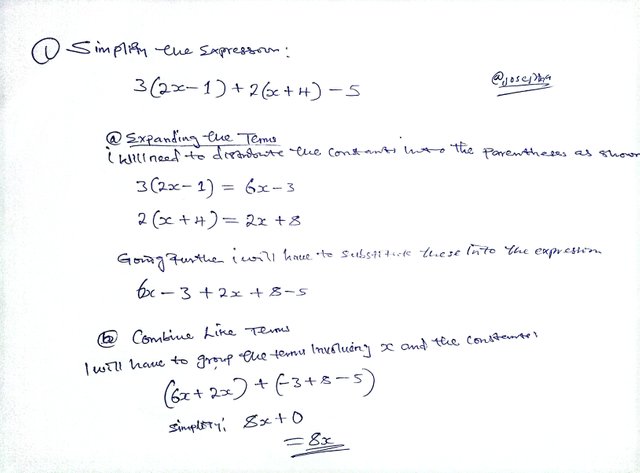 ① Simplify the Expression:
3(2x-1)+2(x+4)-5
ⓐ Expanding the Terms
i will need to distribute the constants into the parentheses as shown
3(2x-1) = 6x-3
2(x+4) = 2x+8
Going further i will have to substitute these into the expression
6x-3+2x+8-5
ⓑ Combine Like Terms
I will have to group the terms involving x and the constants:
(6x+2x)+(-3+8-5)
simplify: 8x+0
=8x